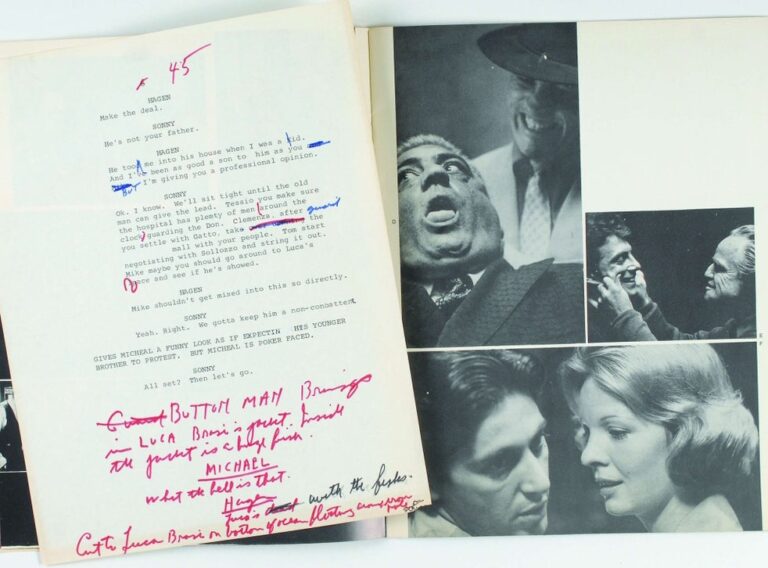 45
HAGEN
Make the deal.
SONNY
He's not your father.
HAGEN
He took me into his house when I was a kid.
And I been as good a son to him as you
But I'm giving you a professional opinion.
SONNY
Ok. I know. We'll sit tight until the old
man can give the lead. Tessio you make sure
the hospital has plenty of men around the
clock guarding the Don. Clemenza, after guard
you settle with Gatto, take the
mail with your people. Tom start
negotiating with Sollozzo and string it out.
Mike maybe you should go around to Luca's
and see if he's showed.
HAGEN
Mike shouldn't get mixed into this so directly.
SONNY
Yeah. Right. We gotta keep him a non-combattent
GIVES MICHEAL A FUNNY LOOK AS IF EXPECTIN HIS YOUNGER
BROTHER TO PROTEST, BUT MICHEAL IS POKER FACED.
SONNY
All set? Then let's go.
BUTTON MAN Brings
in LUCA Brasi's jacket. Inside
the jacket is a huge fish.
MICHAEL
What the hell is that.
Hagen
Luca's with the fishes.
Cut to Luca Brasi on bottom of ocean floating